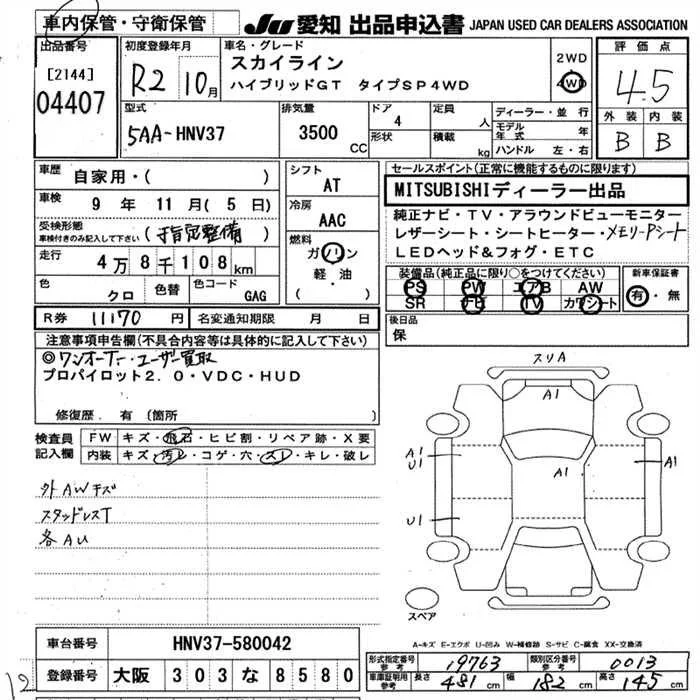 車内保管・守衛保管
JU 愛知 出品申込書 JAPAN USED CAR DEALERS ASSOCIATION
出品番号 [2144] 04407
初度登録年月 R2 10月
車名・グレード スカイライン
ハイブリッドGT タイプSP4WD
2WD 4WD
評価点 4.5
外装 内装
B B
型式 5AA-HNV37
排気量 3500 CC
ドア 4 形状
定員 人 積載 kg
ディーラー・並行
モデル年式 年
ハンドル 左・右
車歴 自家用・( )
車検 9年 11月(5日)
受検形態 車検付きのみ記入して下さい (指定整備)
走行 4万8千108km
色 クロ 色替 色コード GAG
シフト AT
冷房 AAC
燃料 ガソリン
軽・油
( )
セールスポイント(正常に機能するものに限ります)
MITSUBISHIディーラー出品
純正ナビ・TV・アラウンドビューモニター
レザーシート・シートヒーター・メモリーPシート
LEDヘッド&フォグ・ETC
装備品(純正品に限り○をつけてください) 新車保証書
PS PW エアB AW
SR TV カワシート
有・無
R券 11170円 名変通知期限 月 日
後日品
保
注意事項申告欄(不具合内容等は具体的に記入して下さい)
◎ワンオーナー・ユーザー買取
プロパイロット2.0・VDC・HUD
修復歴. 有 (箇所
検査員記入欄
FW キズ・飛石・ヒビ割・リペア跡・X要
内装 キズ・汚レ・コゲ・穴・スレ・キレ・破レ
外AWキズ
スタッドレスT
各AU
スリA
A1
A1
U1
A1
A1
U1
スペア
A-キズ E-エクボ U-凹み W-補修跡 S-サビ C-腐食 XX-交換済
車台番号 HNV37-580042
登録番号 大阪 303 な 8580
型式指定番号 参考 19763 類別区分番号 参考 0013
車庫証明用 参考 長さ 481cm 幅 182cm 高さ 145cm
12